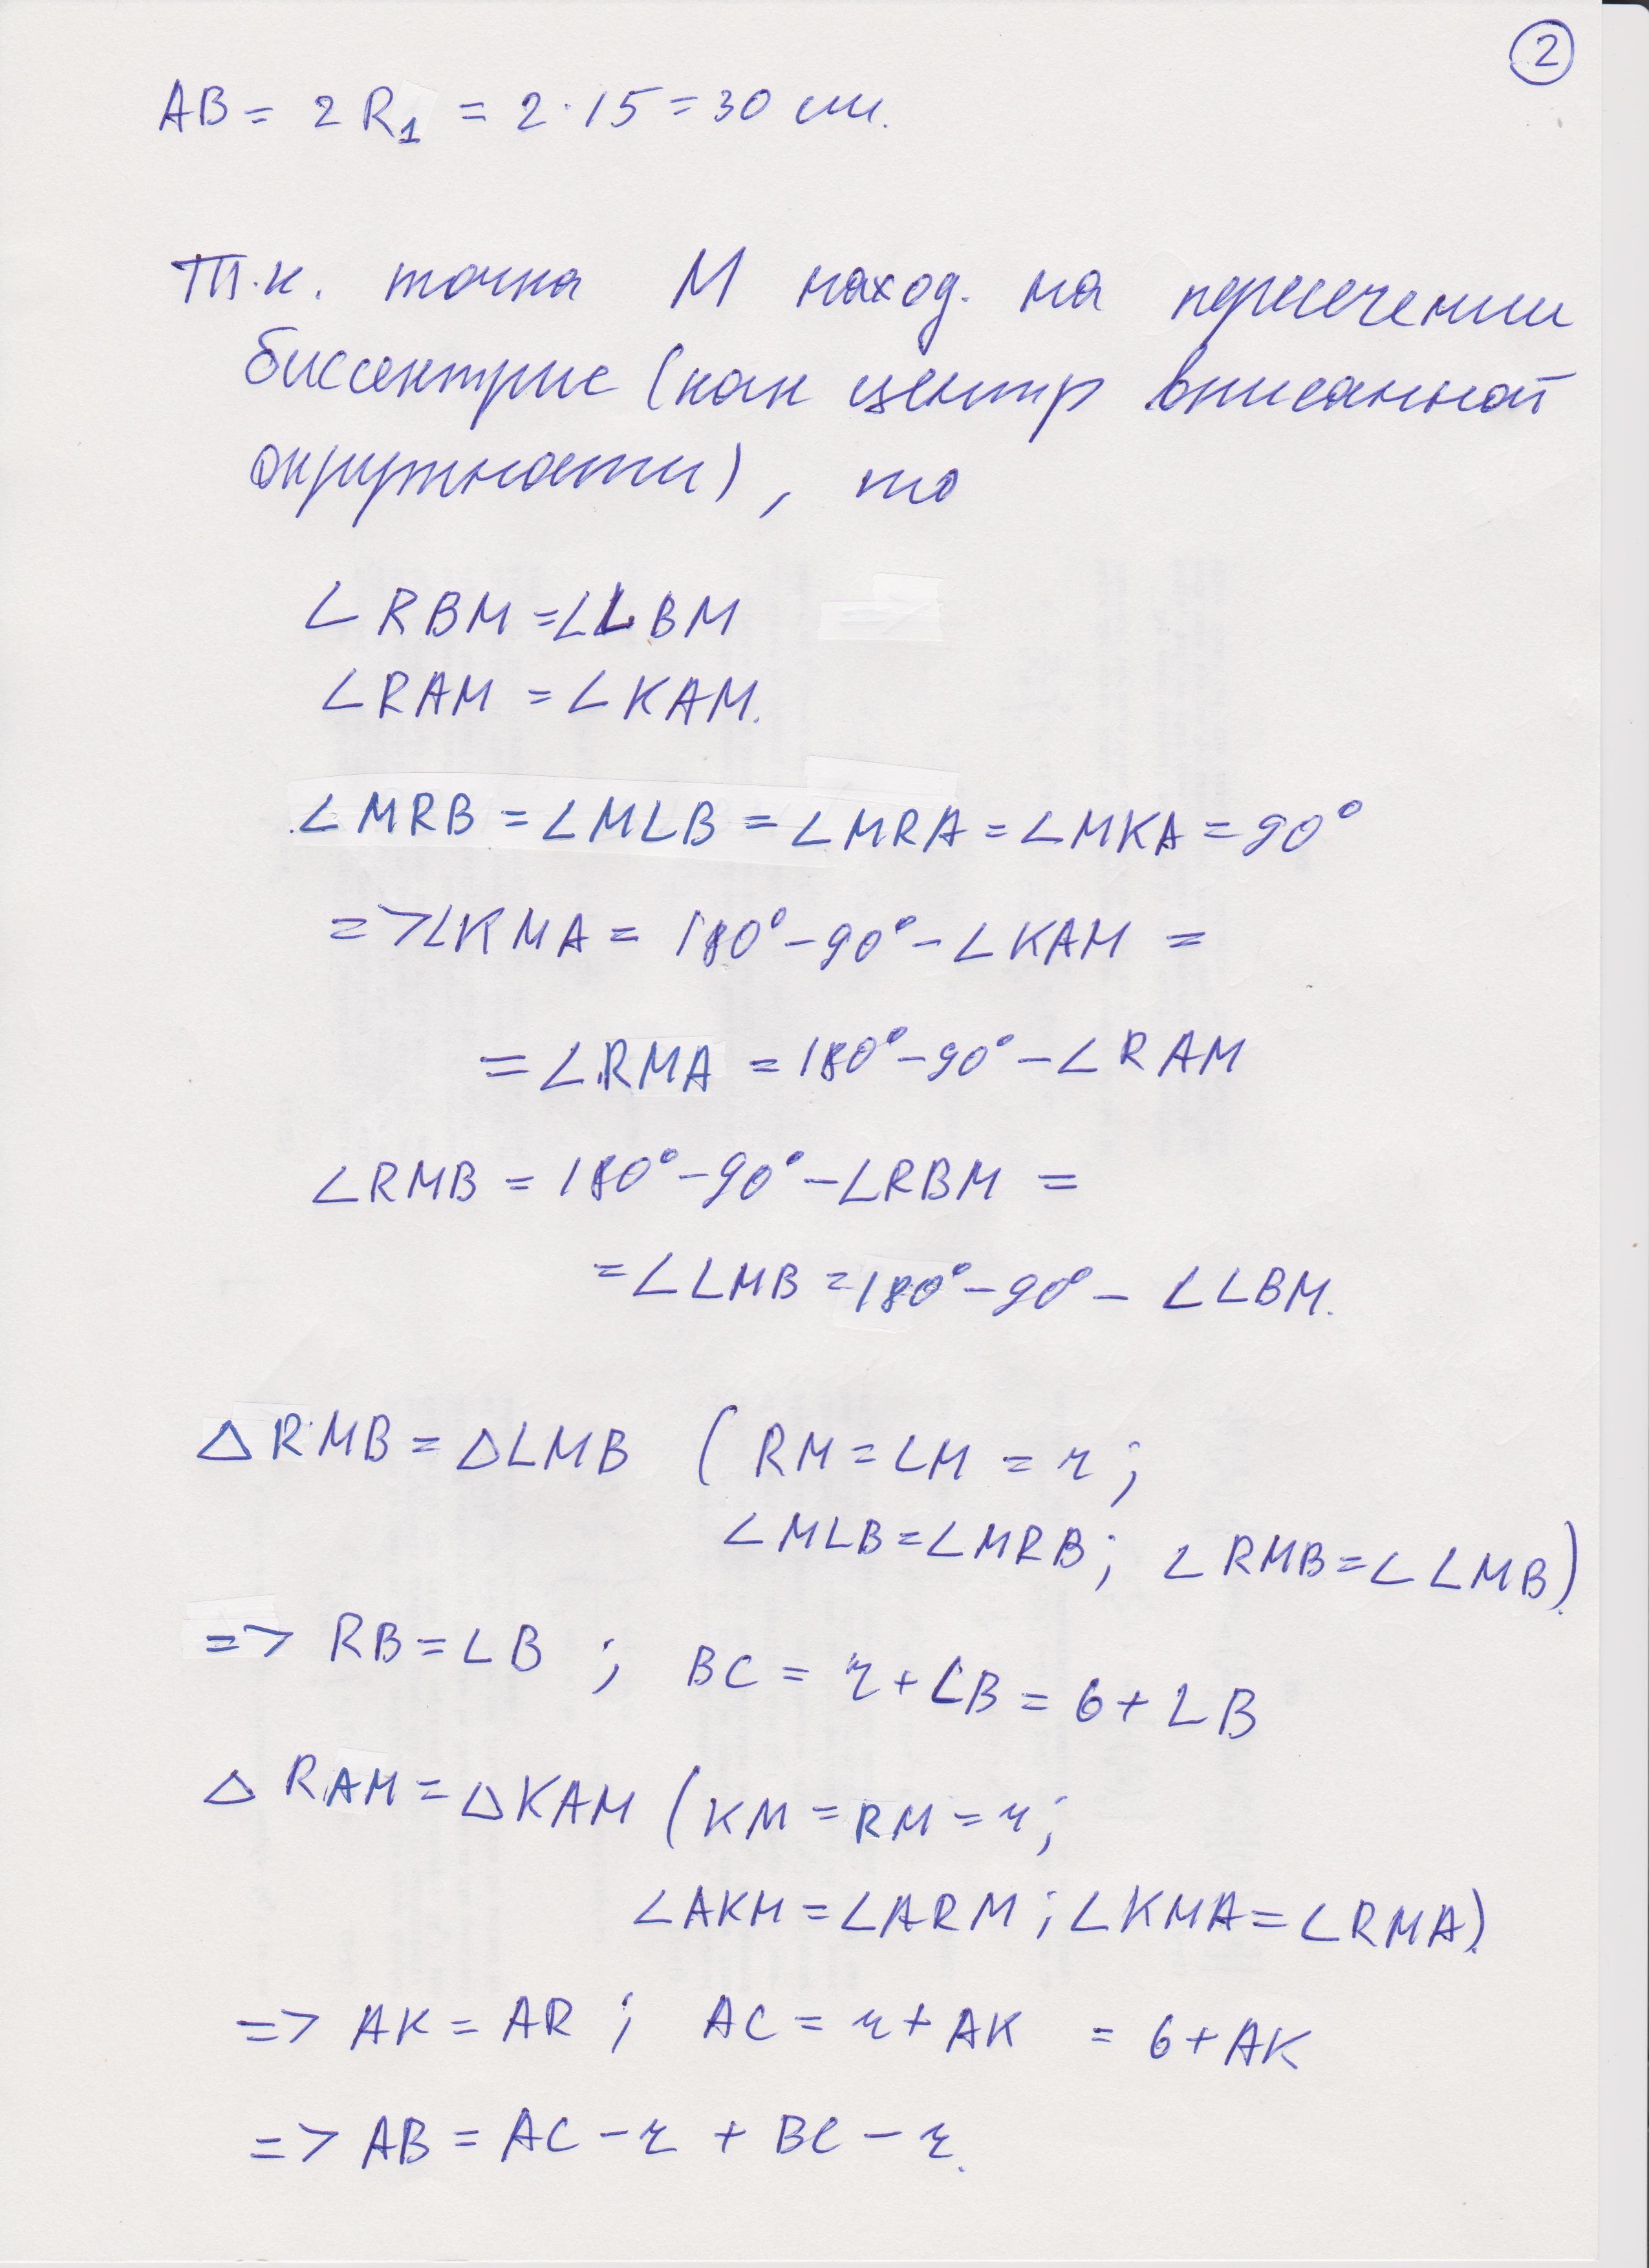 2
AB = 2 R₁ = 2 · 15 = 30 см.
Т.к. точка M наход. на пересечении
биссектрис (как центр вписанной
окружности), то
∠RBM = ∠LBM
∠RAM = ∠KAM.
∠MRB = ∠MLB = ∠MRA = ∠MKA = 90°
=> ∠KMA = 180° - 90° - ∠KAM =
= ∠RMA = 180° - 90° - ∠RAM
∠RMB = 180° - 90° - ∠RBM =
= ∠LMB = 180° - 90° - ∠LBM.
△RMB = △LMB (RM = LM = r;
∠MLB = ∠MRB; ∠RMB = ∠LMB)
=> RB = LB ; BC = r + LB = 6 + LB
△RAM = △KAM (KM = RM = r;
∠AKM = ∠ARM; ∠KMA = ∠RMA)
=> AK = AR ; AC = r + AK = 6 + AK
=> AB = AC - r + BC - r.